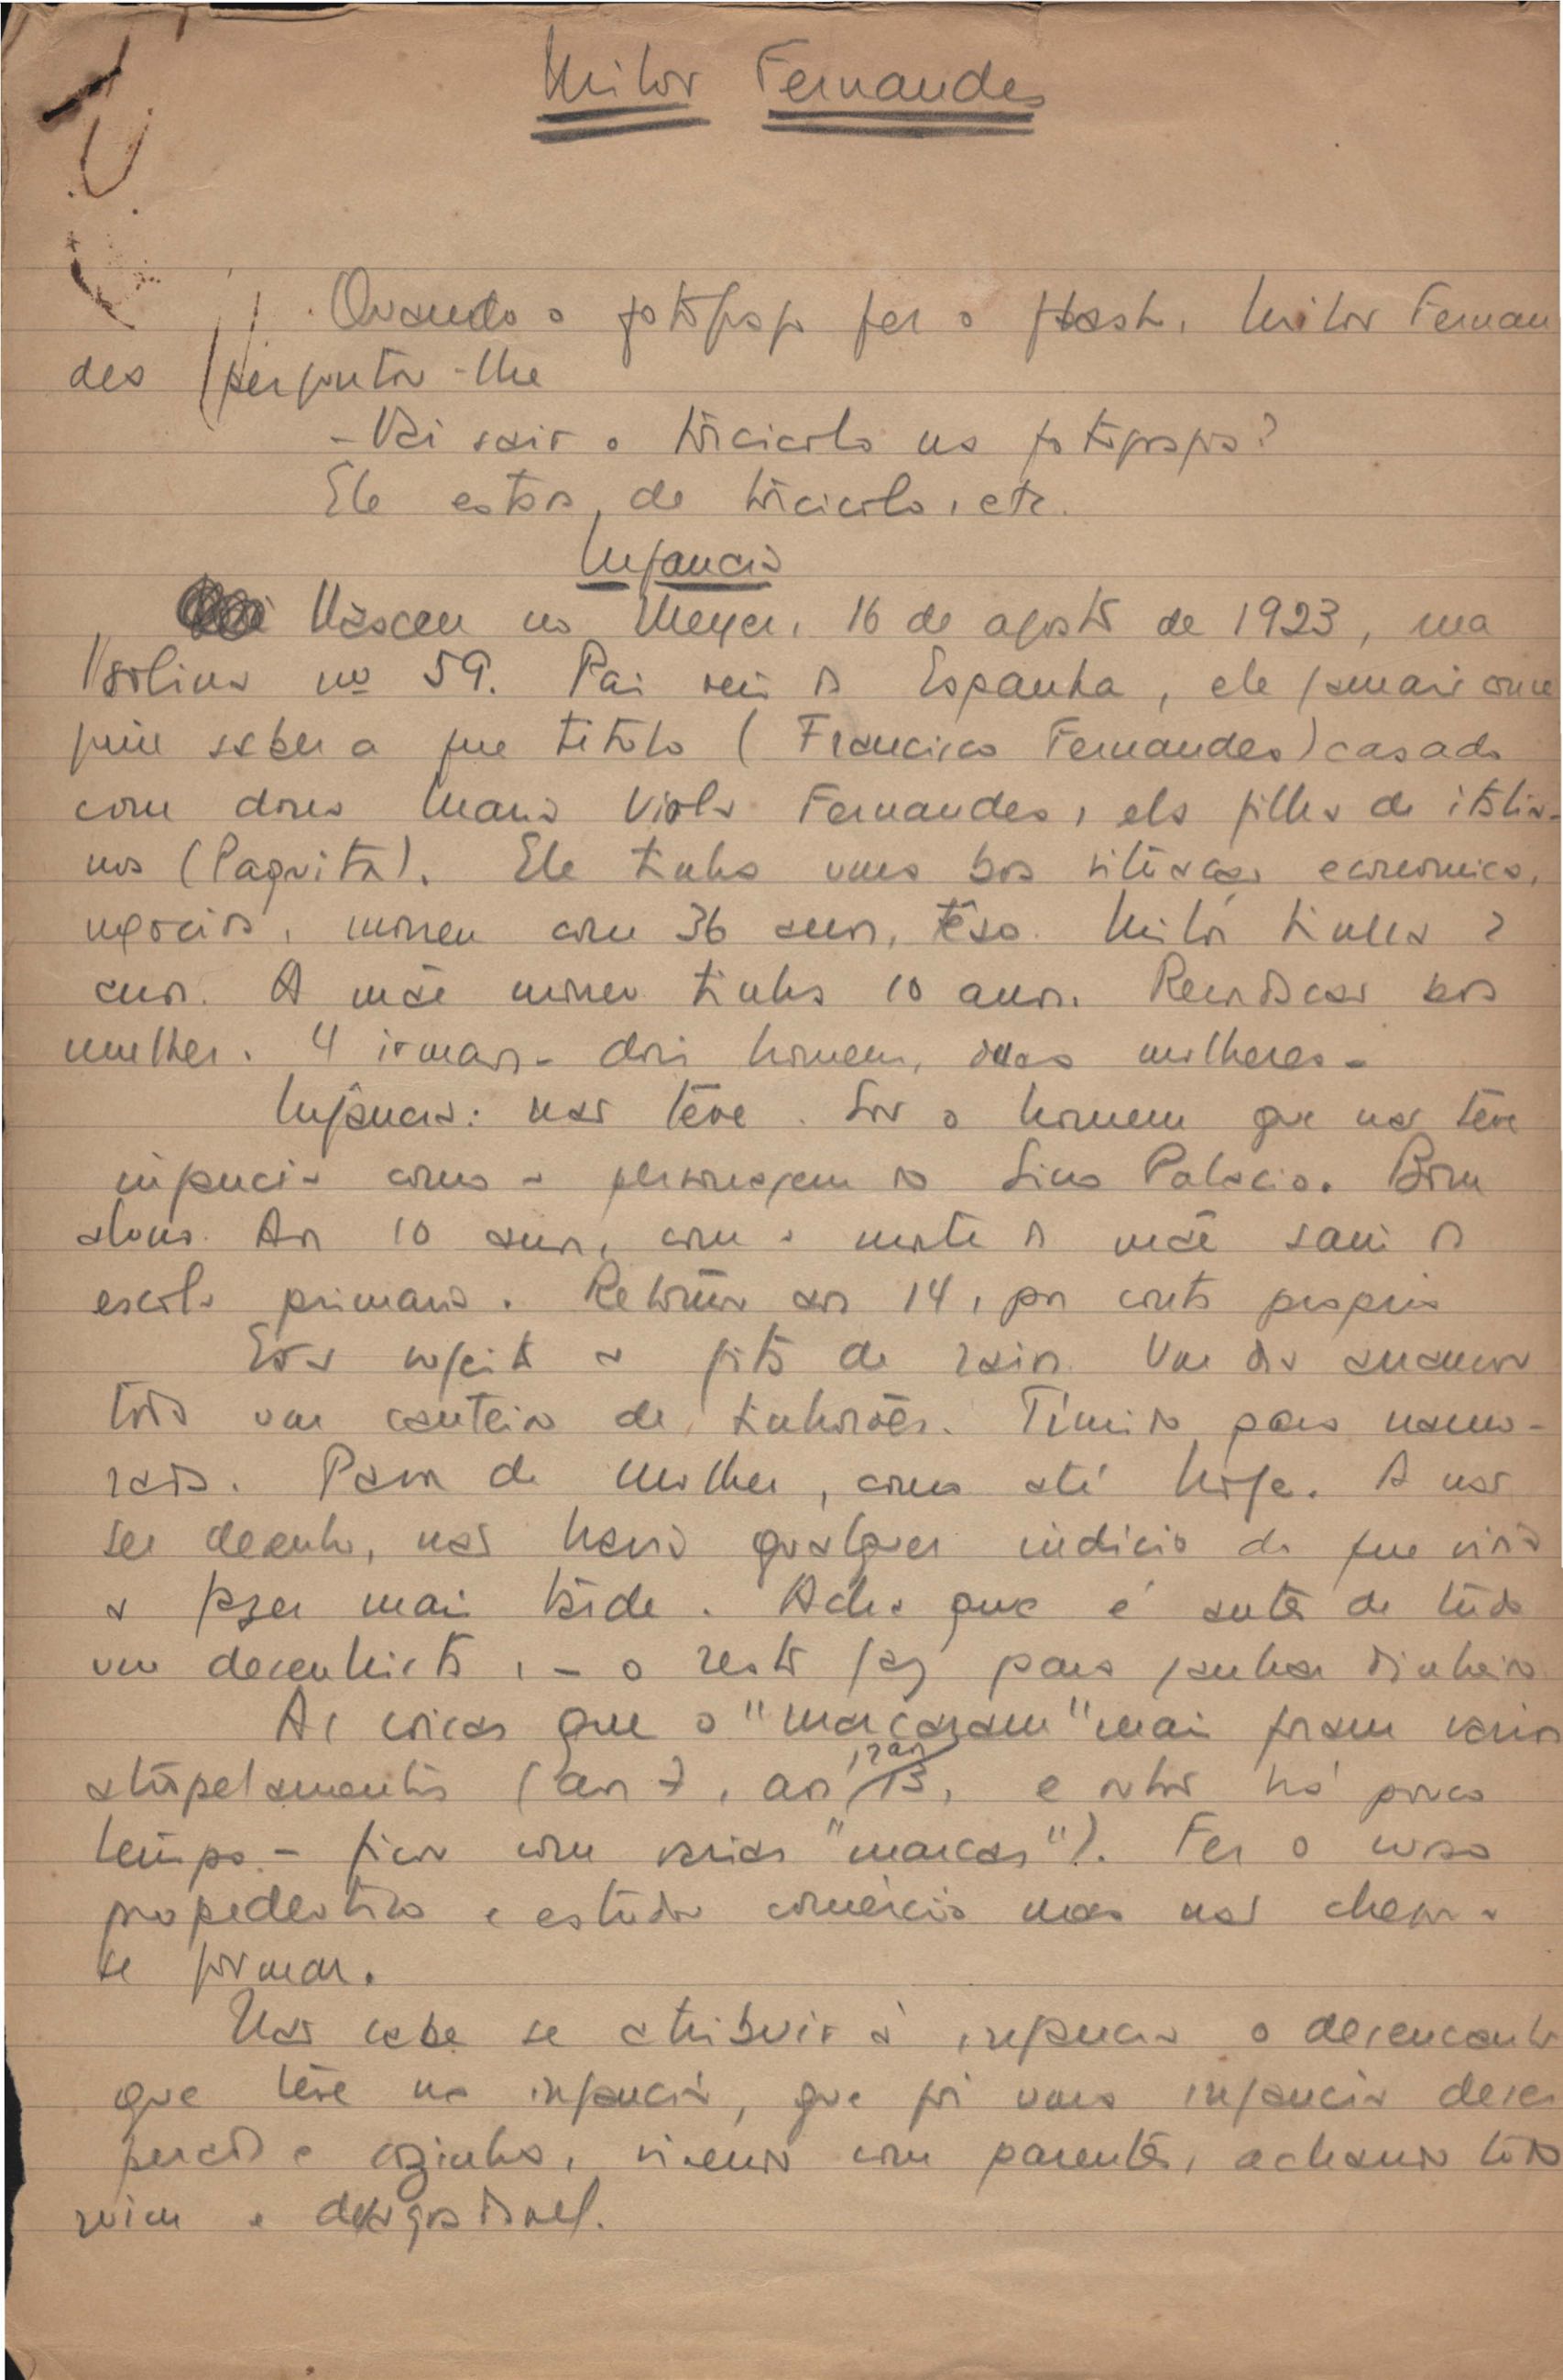 Milor Fernandes
Quando o fotografo fez o flash, Milor Fernan
des perguntou-lhe
- Vai sair o torcicolo na fotografia?
Ele estava de torcicolo, etc.
Infancia
Nasceu no Meyer, 16 de agosto de 1923, rua
Isolina nº 59. Pai veio da Espanha, ele jamais conse
guiu saber a que titulo (Francisco Fernandes) casado
com dona Maria Viola Fernandes, ela filha de italia-
nos (Paquita). Ele tinha uma boa situação economica,
negociava, morreu com 36 anos, têso. Milor tinha 2
anos. A mãe morreu tinha 10 anos. Recordação boa
mulher. 4 irmãos - dois homens, duas mulheres -
Infancia: não têve. Sou o homem que não têve
infancia como a personagem do Lino Palacio. Bom
aluno. Aos 10 anos, com a morte da mãe saiu da
escola primaria. Retornou aos 14, por conta propria
Era sujeito a fita de raiva. Um dia arrancou
todo um canteiro de tinhorões. Timido para namo-
rada. Pavor de mulher, como até hoje. A não
ser desenho, não havia qualquer indicio do que viria
a fazer mais tarde. Acha que é antes de tudo
um desenhista, - o resto faz para ganhar dinheiro
As coisas que o "marcaram" mais foram varios
atropelamentos (aos 7, aos 13, e outro há pouco
tempo - ficou com varias "marcas"). Fez o curso
propedeutico e estudou comércio mas não chegou a
se formar.
Não sabe se atribuir à infancia o desencanto
que teve na infancia, que foi uma infancia deses
perada e sozinha, vivendo com parentes, achando tudo
ruim e desagradavel.